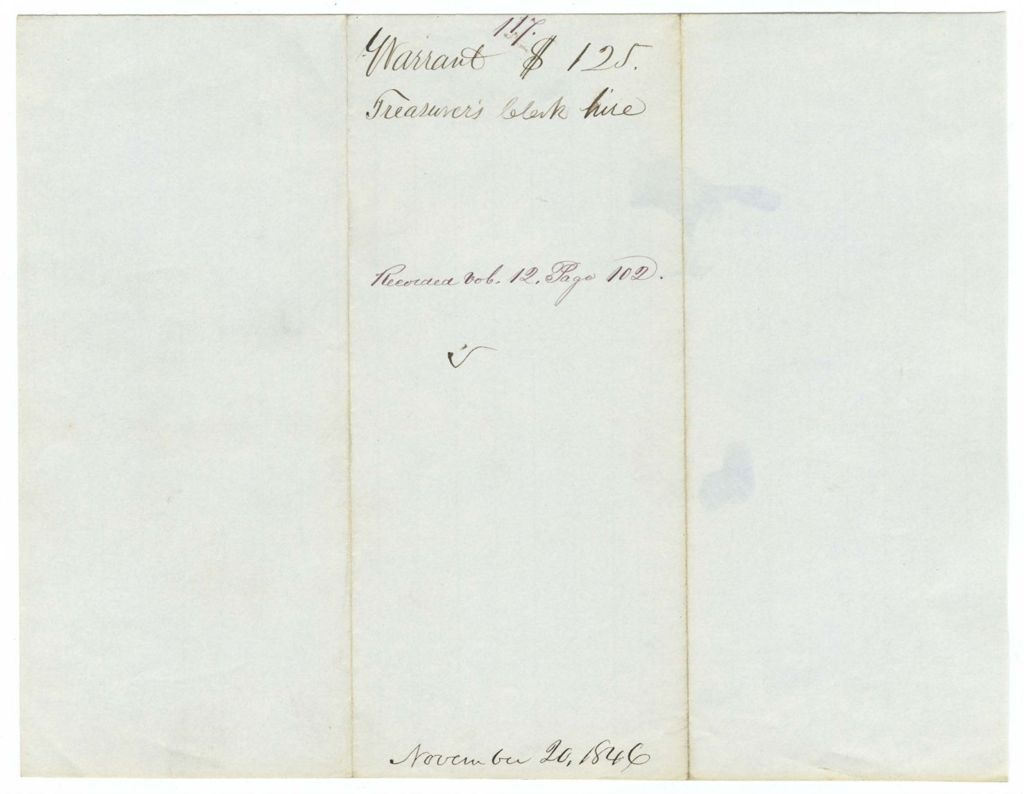 117.
Warrant $ 125.
Treasurer's Clerk hire
Recorded Vol. 12. Page 102.
November 20, 1846